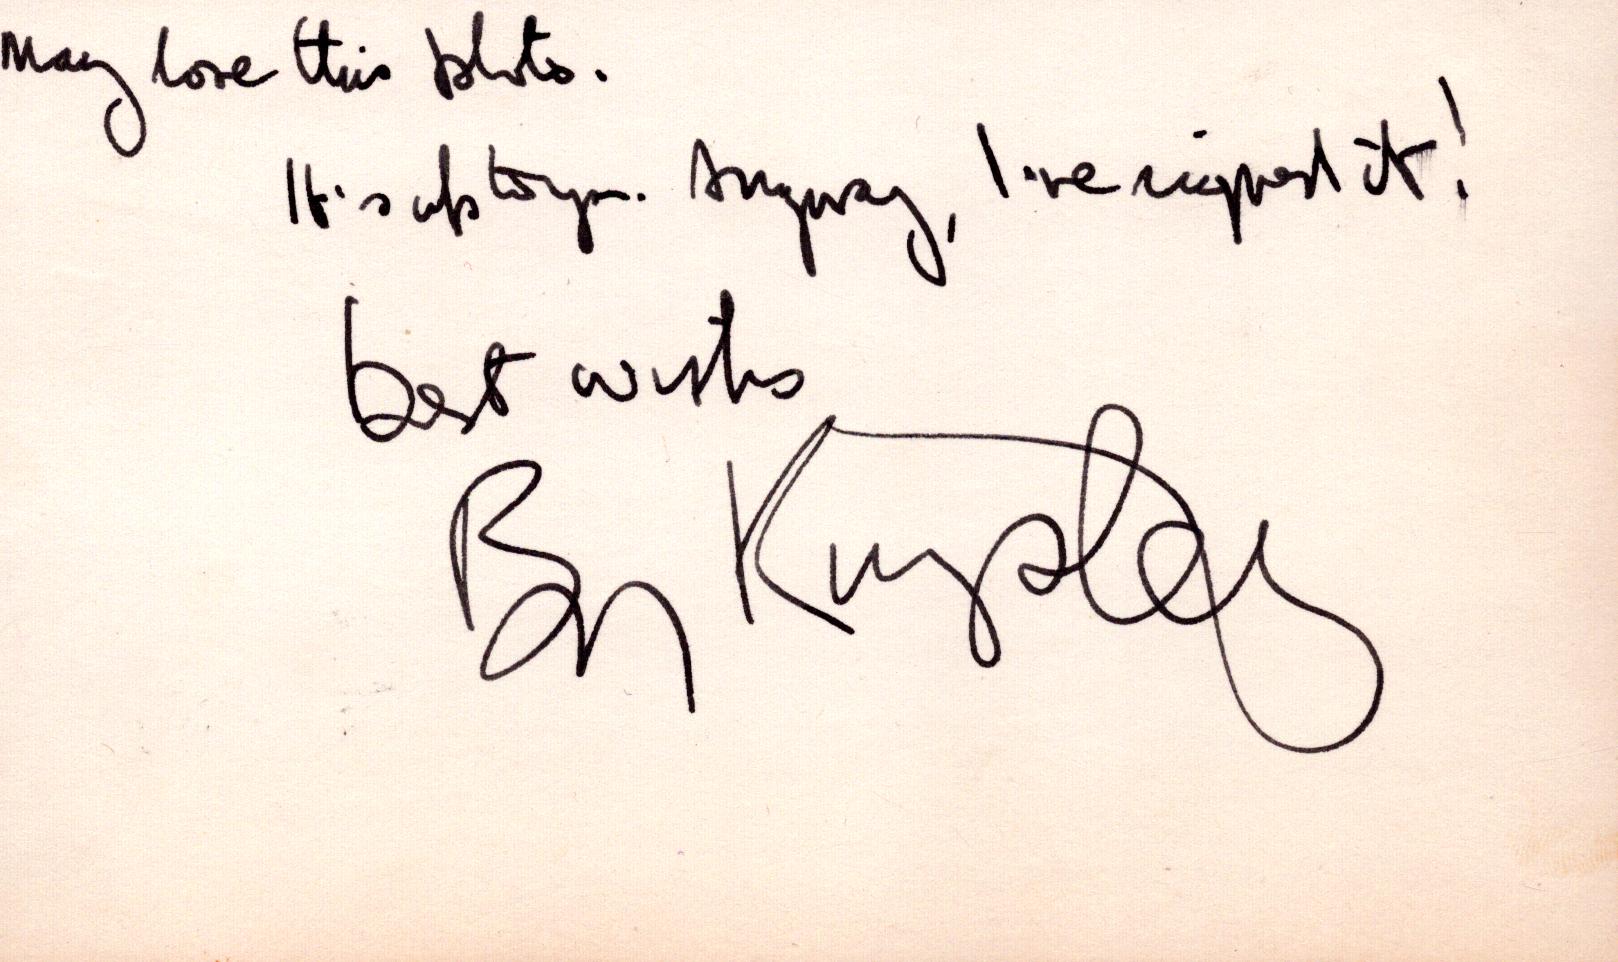 may love this photo.
It's up to you. Anyway, I've signed it!
best wishes
Ben Kingsley